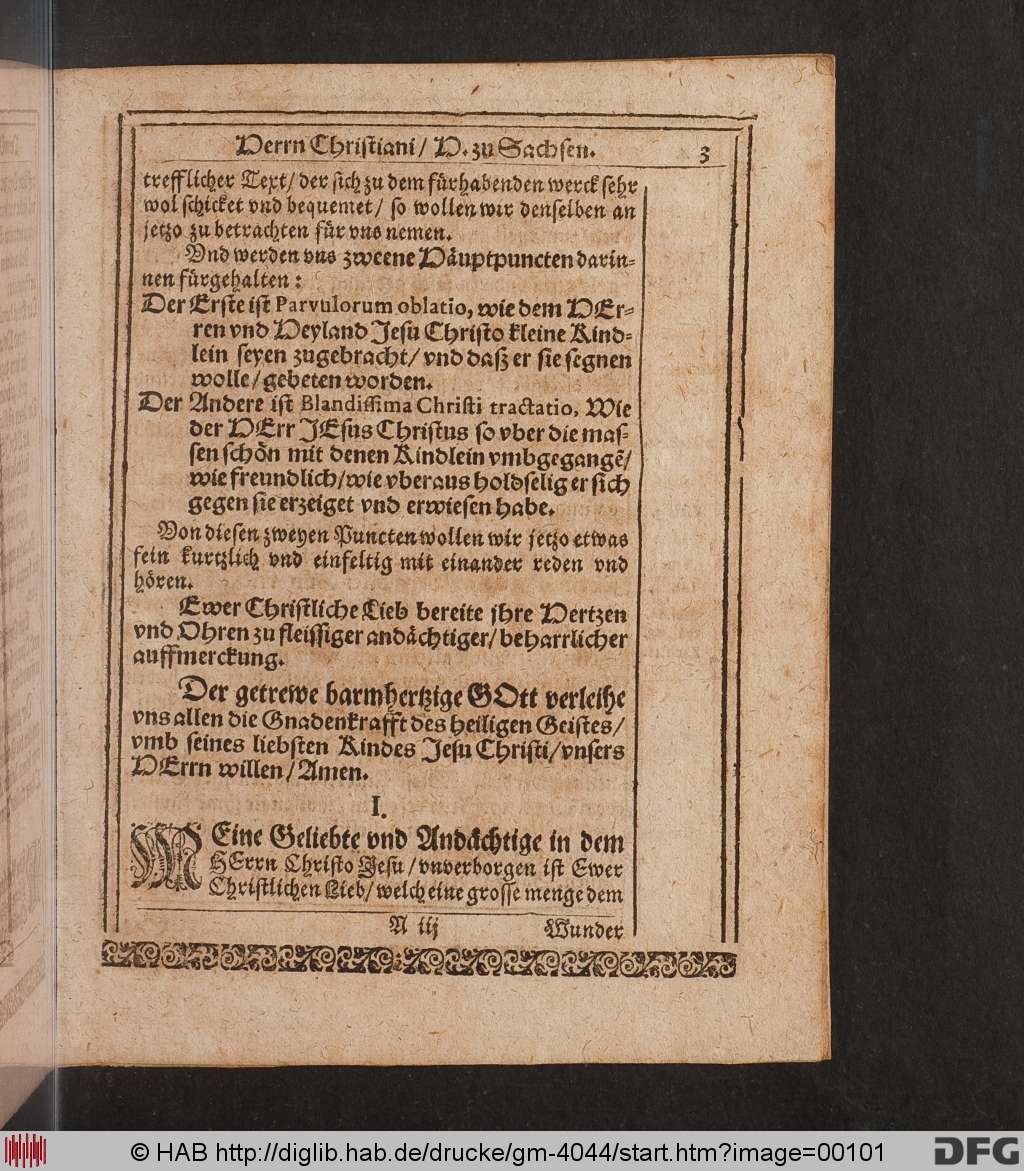 Herrn Christiani / H. zu Sachsen. 3
trefflicher Text / der sich zu dem fürhabenden werck sehr
wol schicket vnd bequemet / so wollen wir denselben an
jetzo zu betrachten für vns nemen.
Vnd werden vns zweene Häuptpuncten darin-
nen fürgehalten :
Der Erste ist Parvulorum oblatio, wie dem HEr-
ren vnd Heyland Jesu Christo kleine Kind-
lein seyen zugebracht / vnd daß er sie segnen
wolle / gebeten worden.
Der Andere ist Blandissima Christi tractatio, Wie
der HErr JEsus Christus so vber die mas-
sen schön mit denen Kindlein vmbgegangẽ /
wie freundlich / wie vberaus holdselig er sich
gegen sie erzeiget vnd erwiesen habe.
Von diesen zweyen Puncten wollen wir jetzo etwas
fein kurtzlich vnd einfeltig mit einander reden vnd
hören.
Ewer Christliche Lieb bereite jhre Hertzen
vnd Ohren zu fleissiger andächtiger / beharrlicher
auffmerckung.
Der getrewe barmhertzige GOtt verleihe
vns allen die Gnadenkrafft des heiligen Geistes /
vmb seines liebsten Kindes Jesu Christi / vnsers
HErrn willen / Amen.
I.
MEine Geliebte vnd Andächtige in dem
HErrn Christo Jesu / vnverborgen ist Ewer
Christlichen Lieb / welch eine grosse menge dem
A iij Wunder
© HAB http://diglib.hab.de/drucke/gm-4044/start.htm?image=00101 DFG